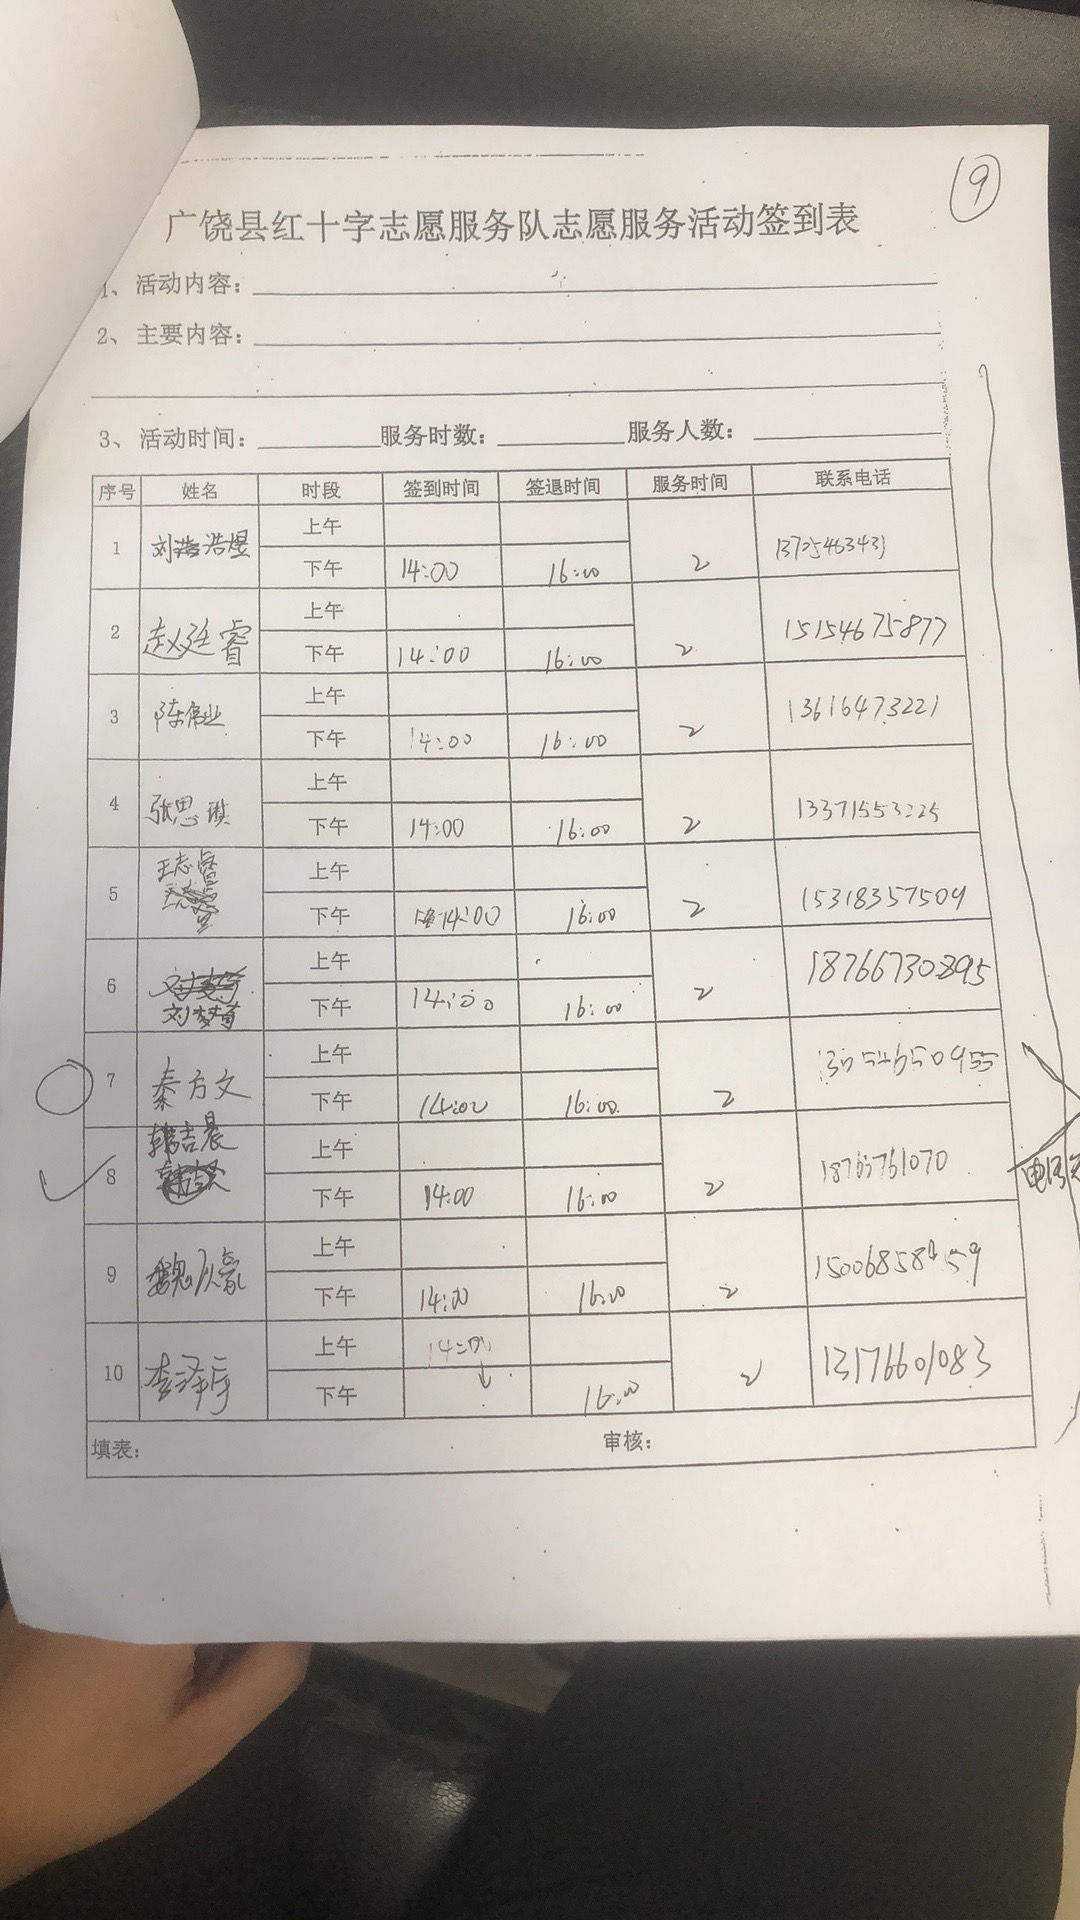 9
广饶县红十字志愿服务队志愿服务活动签到表
1、活动内容：
2、主要内容：
3、活动时间： 服务时数： 服务人数：
序号 姓名 时段 签到时间 签退时间 服务时间 联系电话
1 刘浩煜 上午
下午 14:00 16:00 2 13705463431
2 赵廷睿 上午
下午 14:00 16:00 2 15154675877
3 陈伟业 上午
下午 14:00 16:00 2 13616473221
4 张思琪 上午
下午 14:00 16:00 2 13371553225
5 王志睿 上午
下午 14:00 16:00 2 15318357509
6 上午
刘梦菊 下午 14:00 16:00 2 18766730895
7 秦方文 上午
下午 14:00 16:00 2
8 韩吉晨 上午
下午 14:00 16:00 2 18765761070
9 上午
下午 14:00 16:00 2
10 李泽宇 上午 14:00
下午 16:00 2 13176601083
填表： 审核：